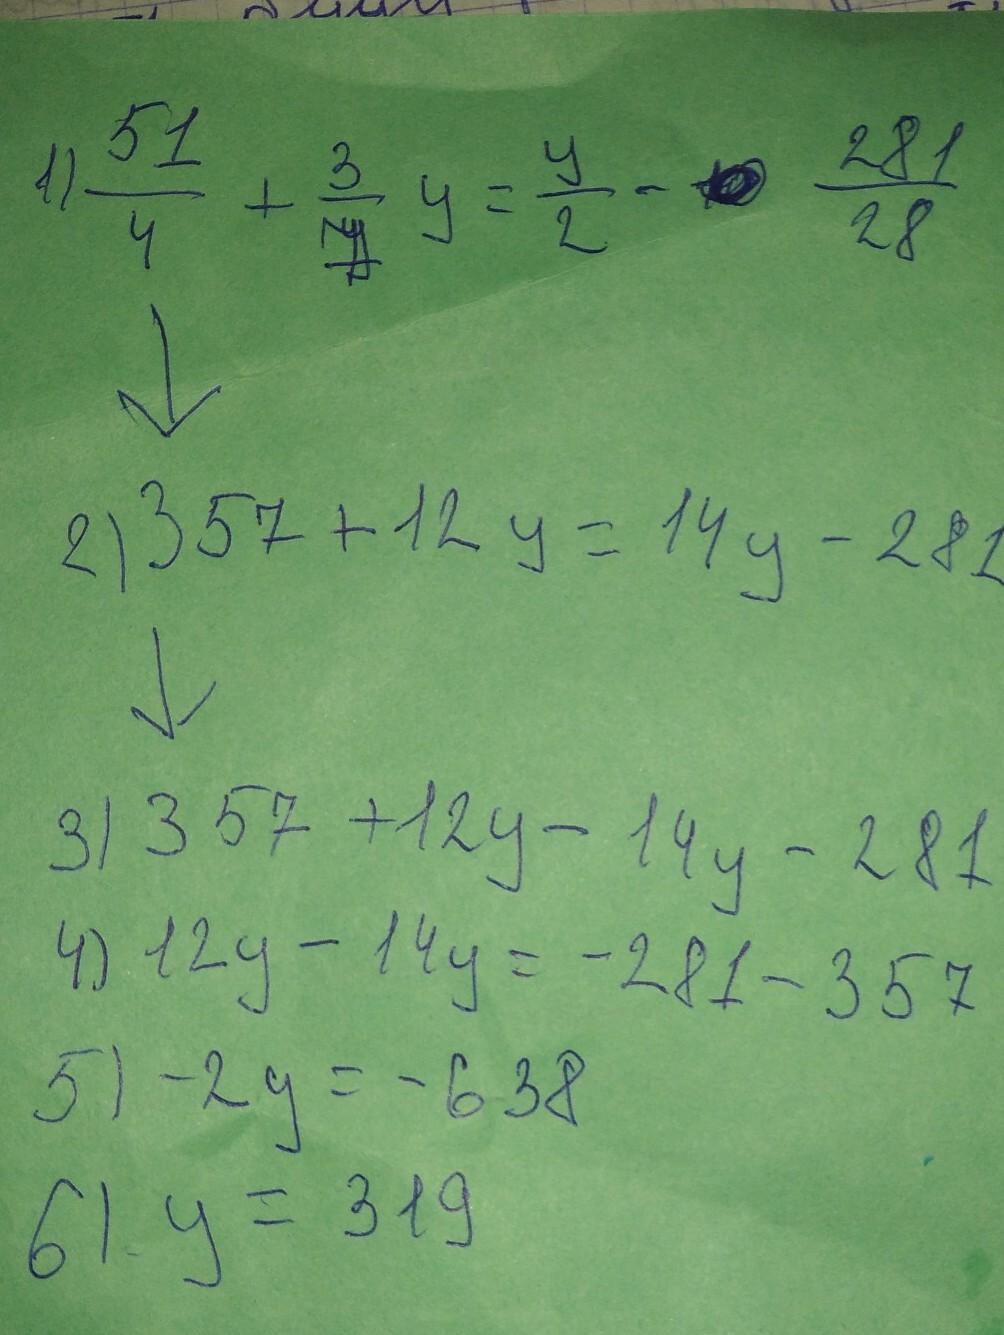 1) 51/4 + 3/7 y = y/2 - 281/28
2) 357 + 12y = 14y - 281
3) 357 + 12y - 14y - 281
4) 12y - 14y = -281 - 357
5) -2y = -638
6) y = 319